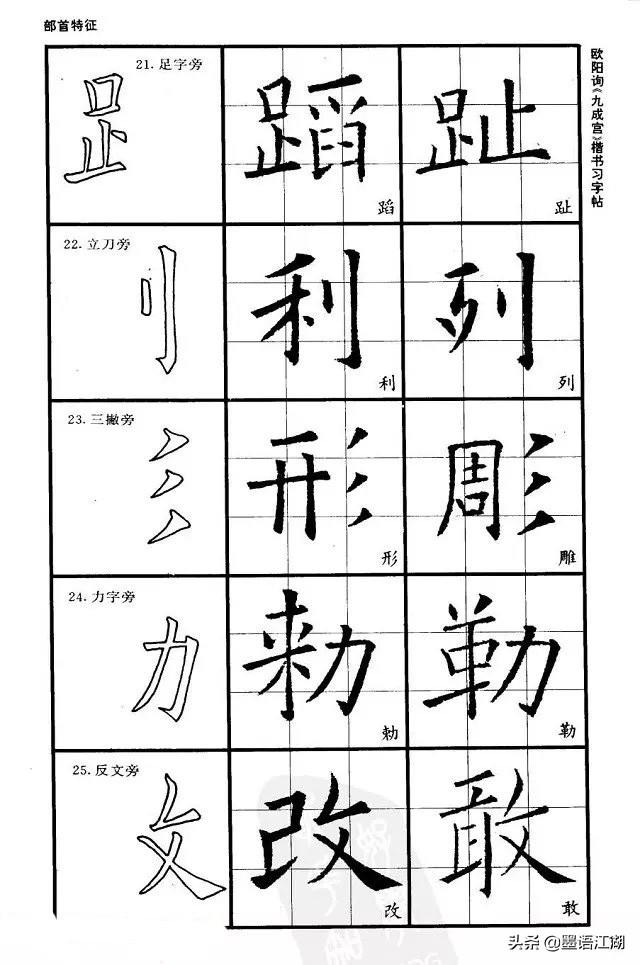 部首特征
欧阳询《九成宫》楷书习字帖
21.足字旁
𧾷 蹈 趾
蹈 趾
22.立刀旁
刂 利 列
利 列
23.三撇旁
彡 形 彫
形 雕
24.力字旁
力 勑 勒
勅 勒
25.反文旁
攵 改 敢
改 敢
头条@墨语江湖